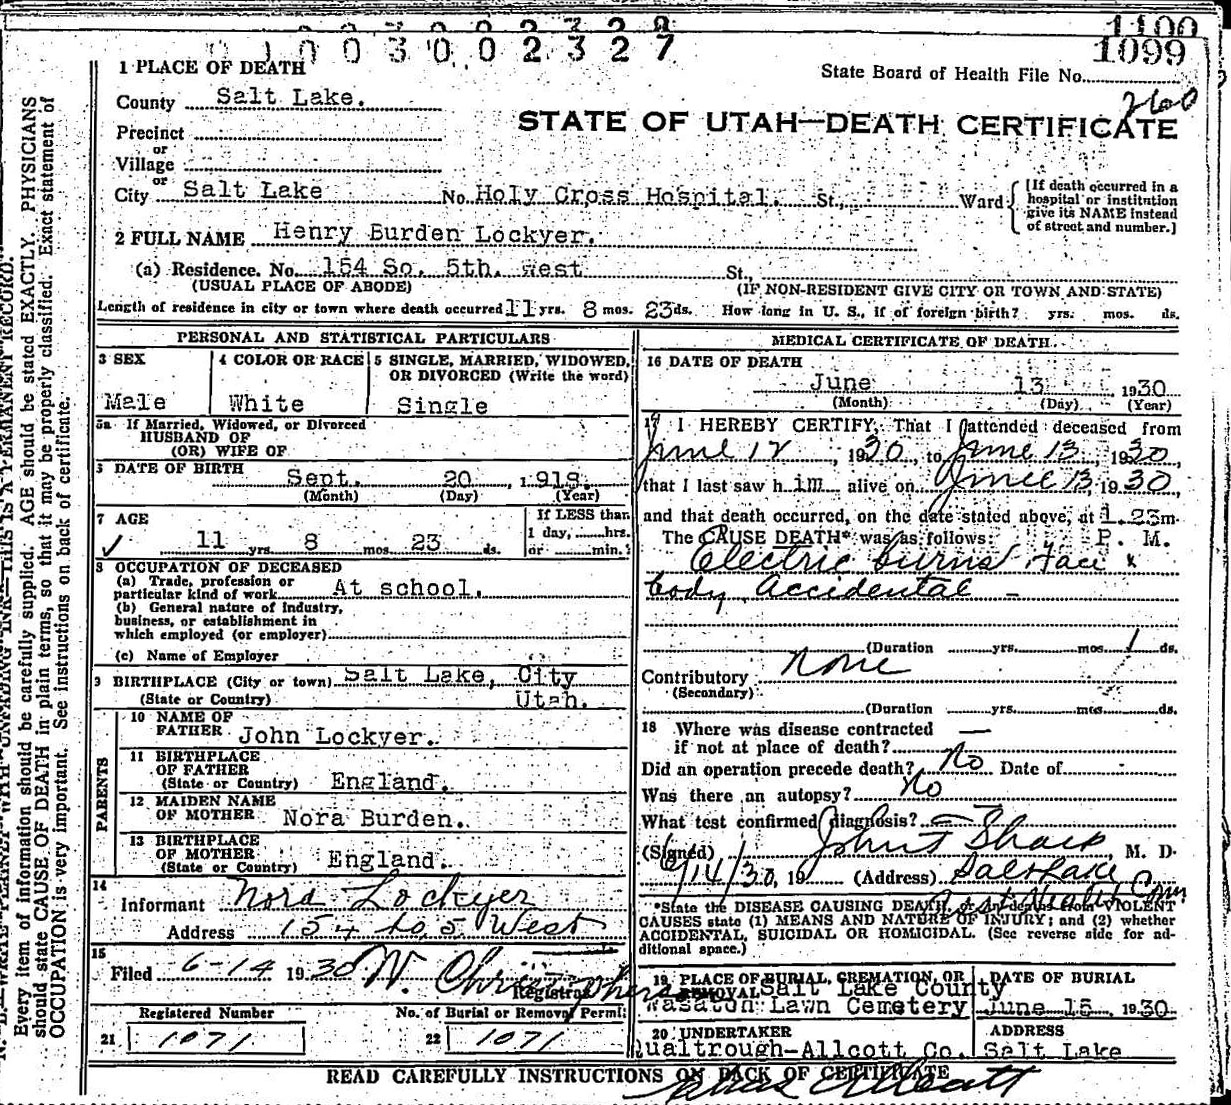 0100300 2327
1100
1099
State Board of Health File No.
260
1 PLACE OF DEATH
County Salt Lake.
STATE OF UTAH—DEATH CERTIFICATE
Precinct
or
Village
or
City Salt Lake No. Holy Cross Hospital. St., Ward
[If death occurred in a hospital or institution give its NAME instead of street and number.]
2 FULL NAME Henry Burden Lockyer.
(a) Residence. No. 154 So. 5th. west St.,
(USUAL PLACE OF ABODE) (IF NON-RESIDENT GIVE CITY OR TOWN AND STATE)
Length of residence in city or town where death occurred 11 yrs. 8 mos. 23 ds. How long in U. S., if of foreign birth? yrs. mos. ds.
PERSONAL AND STATISTICAL PARTICULARS
3 SEX
Male
4 COLOR OR RACE
White
5 SINGLE, MARRIED, WIDOWED, OR DIVORCED (Write the word)
Single
5a If Married, Widowed, or Divorced
HUSBAND OF
(OR) WIFE OF
DATE OF BIRTH
Sept. 20 , 1918.
(Month) (Day) (Year)
7 AGE
✓ 11 yrs 8 mos 23 ds.
If LESS than
1 day, hrs.
or min.
8 OCCUPATION OF DECEASED
(a) Trade, profession or
particular kind of work At school.
(b) General nature of industry,
business, or establishment in
which employed (or employer)
(c) Name of Employer
9 BIRTHPLACE (City or town) Salt Lake, City
(State or Country) Utah.
PARENTS
10 NAME OF
FATHER John Lockyer.
11 BIRTHPLACE
OF FATHER
(State or Country) England.
12 MAIDEN NAME
OF MOTHER Nora Burden.
13 BIRTHPLACE
OF MOTHER
(State or Country) England.
14
Informant Nora Lockyer
Address 154 So, 5 West
15
Filed 6-14 1930 W. Christopherson
Registrar
Registered Number
21 1071
No. of Burial or Removal Permit
22 1071
MEDICAL CERTIFICATE OF DEATH
16 DATE OF DEATH
June 13 , 1930
(Month) (Day) (Year)
17 I HEREBY CERTIFY, That I attended deceased from
June 12 , 1930, to June 13, 1930,
that I last saw him alive on June 13, 1930,
and that death occurred, on the date stated above, at 1.23m.
The CAUSE DEATH* was as follows: P. M.
Electric burns face &
body, Accidental -
(Duration yrs. mos. 1 ds.
Contributory None
(Secondary)
(Duration yrs. mos. ds.
18 Where was disease contracted —
if not at place of death?
Did an operation precede death? No Date of
Was there an autopsy? No
What test confirmed diagnosis? —
(Signed) John T Sharp, M. D.
6/14/30, 19 (Address) Salt Lake
*State the DISEASE CAUSING DEATH, or in deaths from VIOLENT
CAUSES state (1) MEANS AND NATURE OF INJURY; and (2) whether
ACCIDENTAL, SUICIDAL OR HOMICIDAL. (See reverse side for ad-
ditional space.)
19 PLACE OF BURIAL, CREMATION, OR
REMOVAL Salt Lake County
Wasatch Lawn Cemetery
DATE OF BURIAL
June 15, 1930.
20 UNDERTAKER
Qualtrough-Allcott Co.
ADDRESS
Salt Lake
READ CAREFULLY INSTRUCTIONS ON BACK OF CERTIFICATE
N. B.—WRITE PLAINLY WITH UNFADING INK—THIS IS A PERMANENT RECORD.
Every item of information should be carefully supplied. AGE should be stated EXACTLY. PHYSICIANS
should state CAUSE OF DEATH in plain terms, so that it may be properly classified. Exact statement of
OCCUPATION is very important. See instructions on back of certificate.